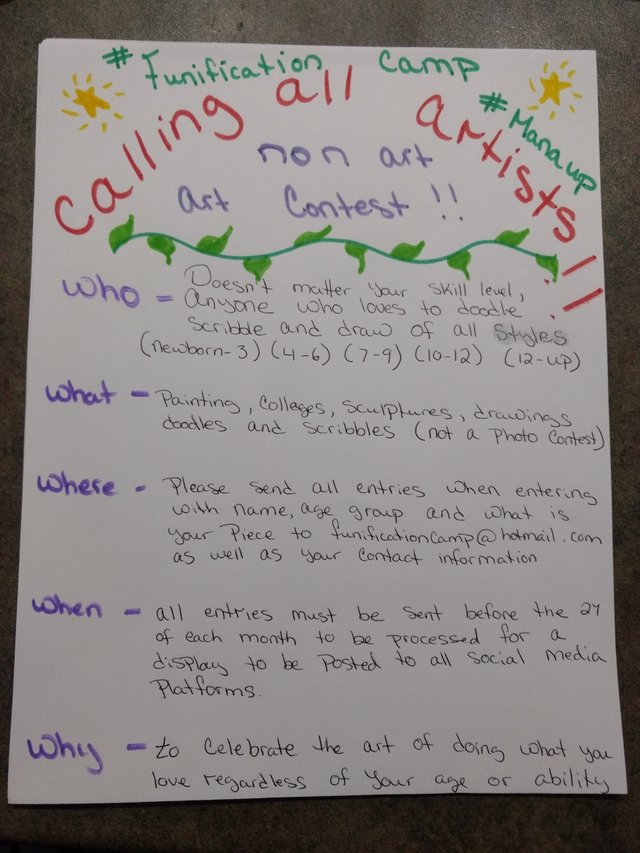 # Funification Camp
calling all artists!!
# Manaup
non art
art Contest!!
who = Doesn't matter your skill level,
anyone who loves to doodle
scribble and draw of all styles
(newborn-3) (4-6) (7-9) (10-12) (12-up)
what - Painting, Colleges, Sculptures, drawings
doodles and scribbles (not a Photo Contest)
where - Please send all entries when entering
with name, age group and what is
your Piece to funificationcamp@hotmail.com
as well as your contact information
when - all entries must be sent before the
of each month to be processed for a
display to be Posted to all social media
Platforms.
why - to celebrate the art of doing what you
love regardless of your age or ability